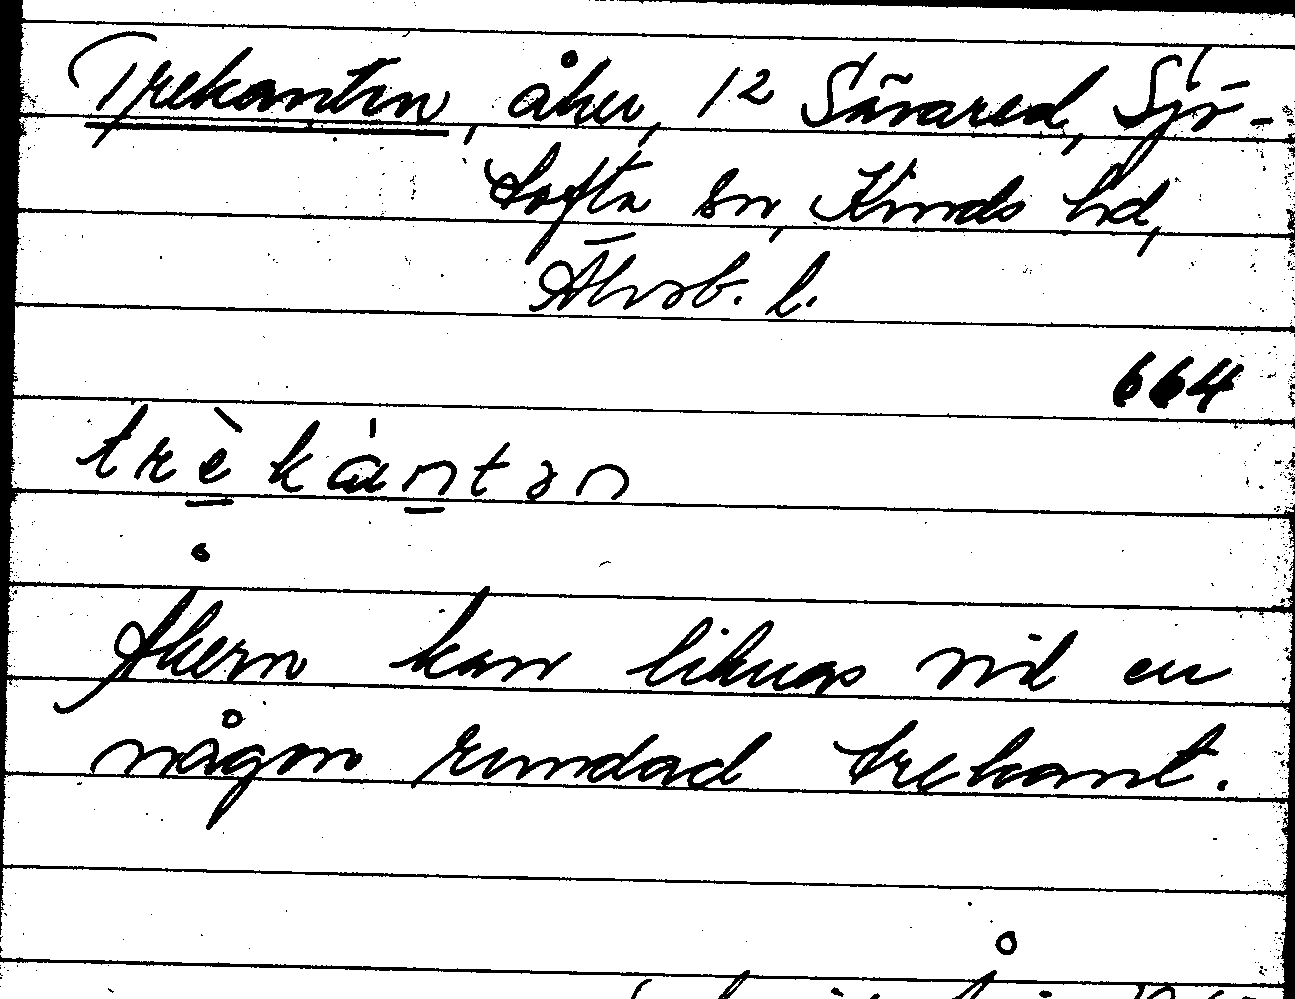 Trekanten, åker, 12 Sävared, Sjö-
tofta sn, Kinds hd,
Älvsb. l.
664
trèkántən
Åkern kan liknas vid en
någon rundad trekant.